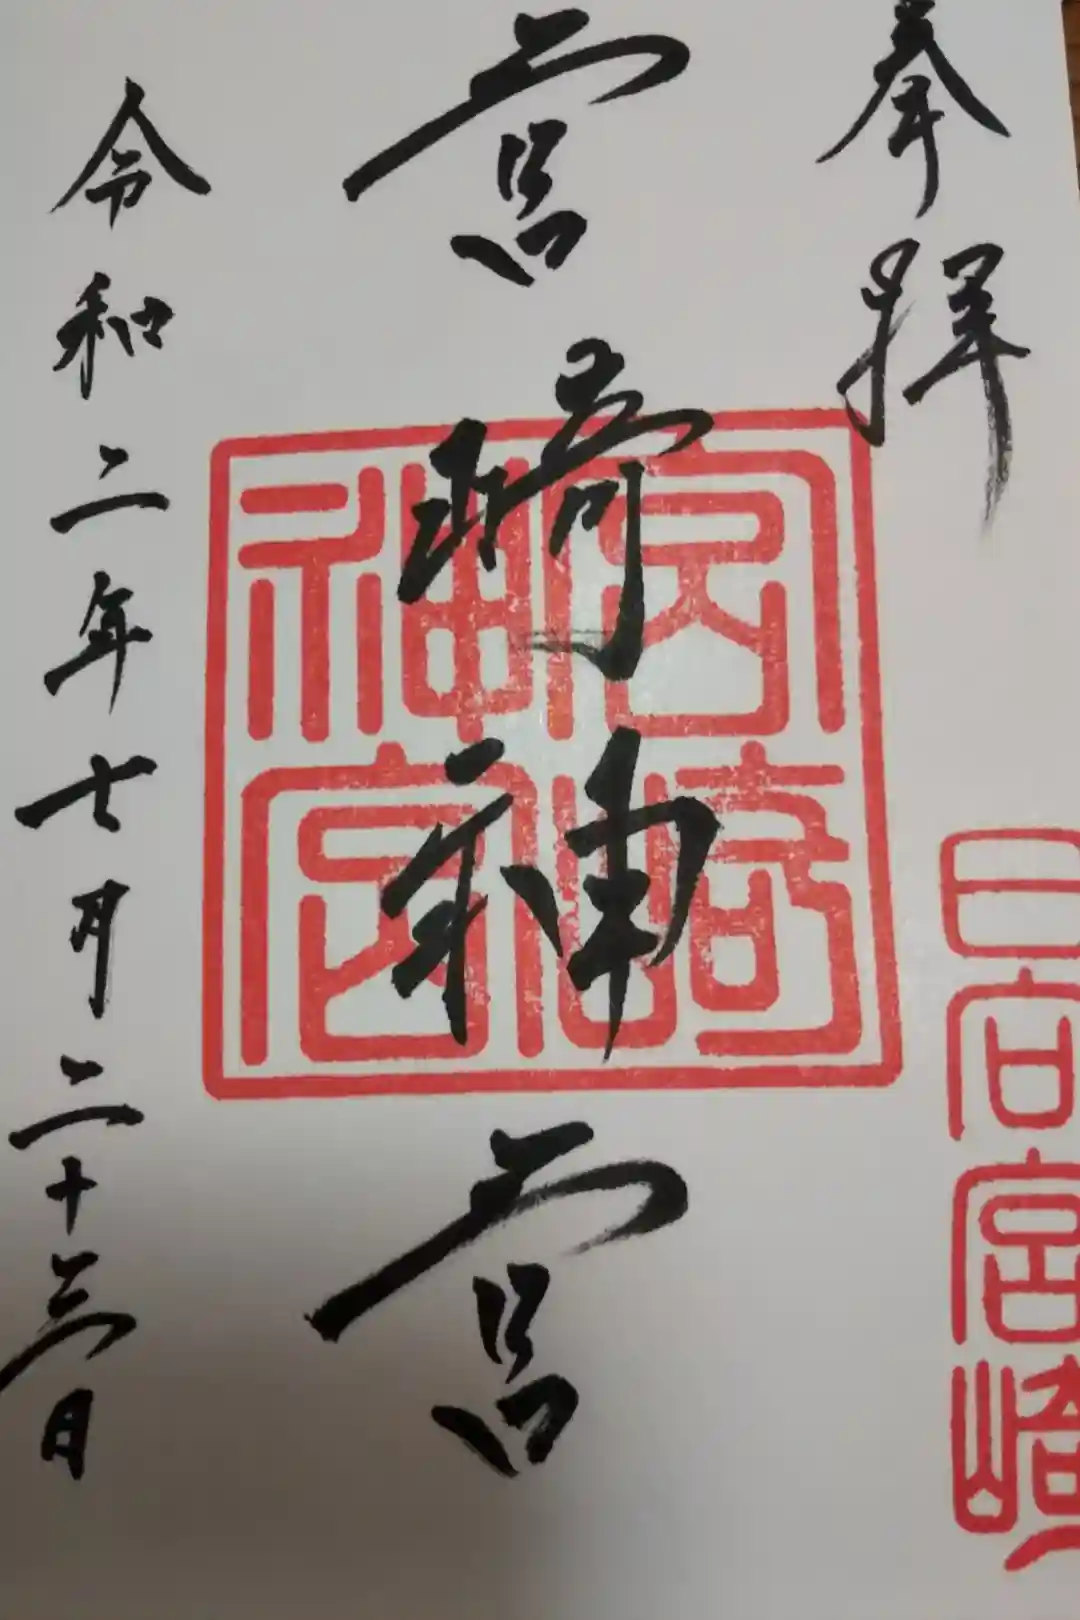 奉拝
日向宮崎
宮崎神宮
宮崎神宮
令和二年七月二十三日